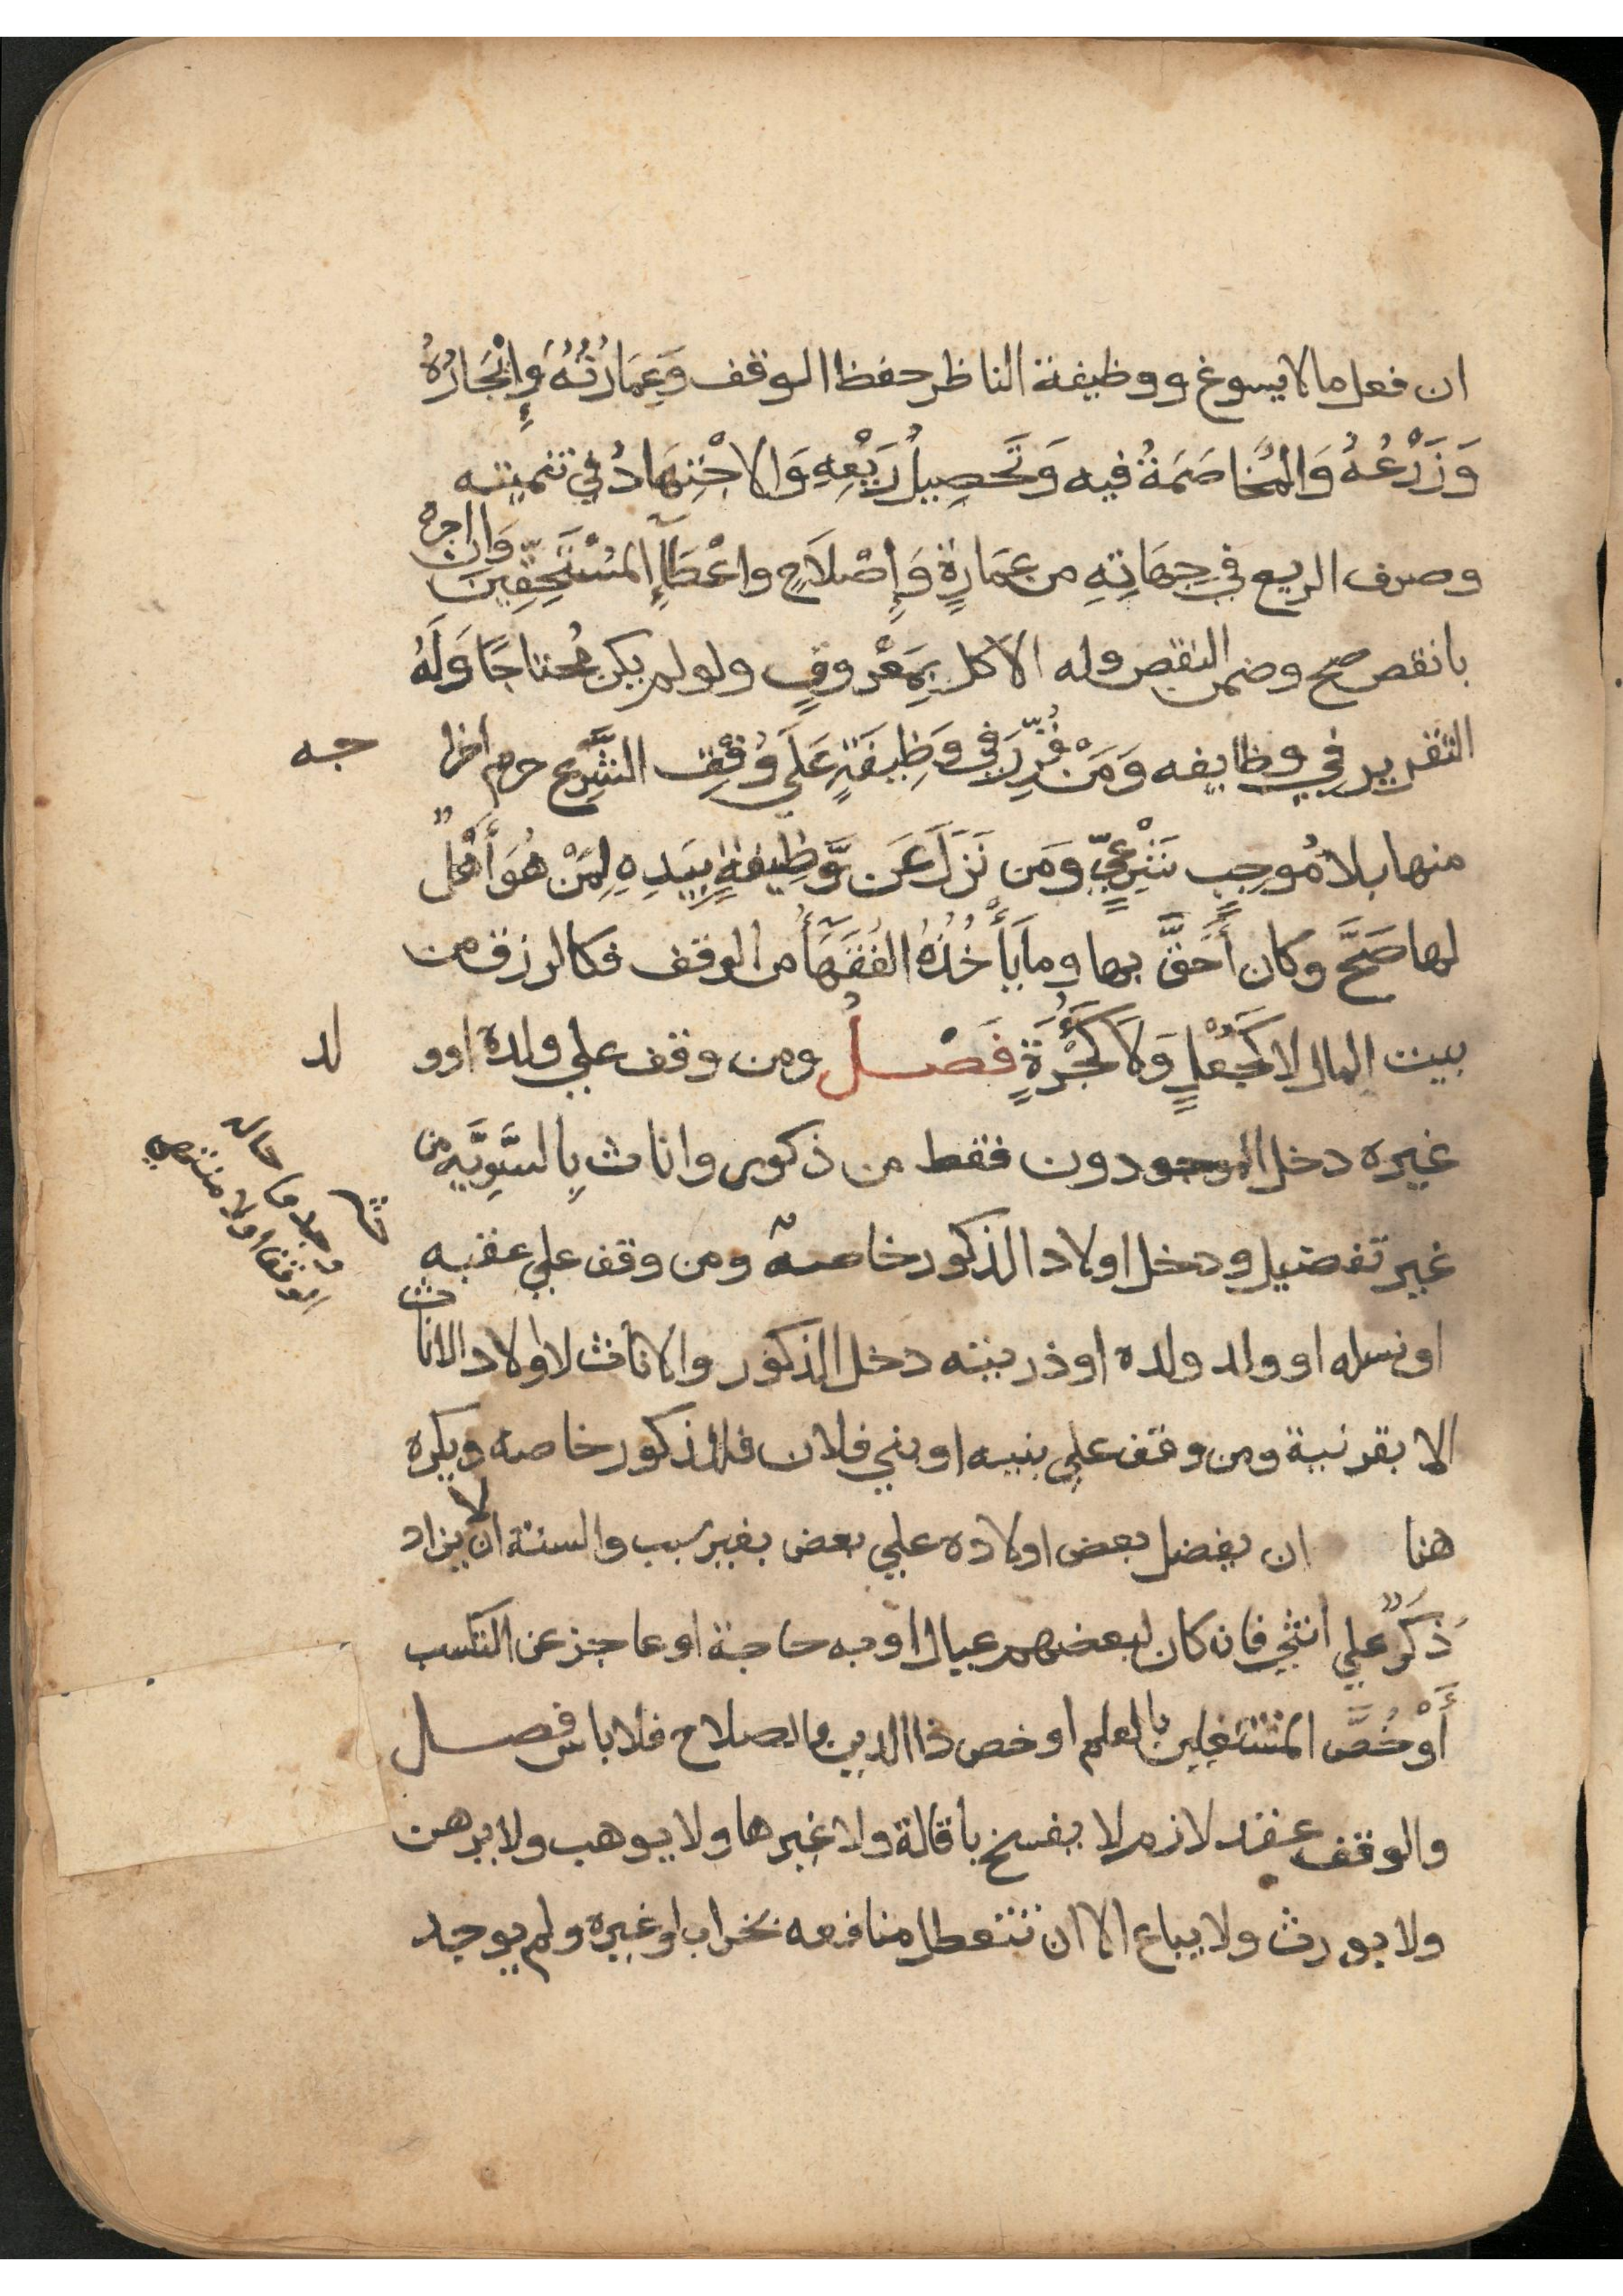 ان فعل ما لا يسوغ ووظيفة الناظر حفظ الوقف وَعِمَارَتُهُ وَإِيْجَارُهُ
وَزَرْعُهُ وَالْمُخَاصَمَةُ فيه وَتَحْصِيلُ رَيْعِهِ وَالاجْتِهَادُ في تنميته
وصرف الريع في جِهَاتِهِ من عِمَارةٍ وَإِصْلَاحٍ واعْطَآءِ المُسْتَحِقِّينَ وَان اجره
بانقص صح وضمن النقص وله الاكل بِمَعْروفٍ ولو لم يكن مُحتاجًا وَلَهُ
التقرير في وظايفه وَمَنْ قُرِّرَ في وَظِيفَةٍ عَلَى وُفْقِ الشَّرع حرم اخرا
جه
منها بلا مُوجِبٍ شَرْعِيٍّ ومَن نَزَلَ عَن وَّظِيفةٍ بِيَدِهِ لِمَنْ هُوَ أَهْلٌ
لها صَحَّ وكان أَحَقَّ بها وما يَأْخُذُهُ الفُقَهَآءُ من الوقف فكالرزق من
بيت المال لا كَجُعْلٍ وَلا كَأُجْرَةٍ فَصْلُ ومن وقف علي ولده او و
لد
غيره دخل الموجودون فقط من ذكور واناث بِالسَّوِيَّه من
غير تفضيل ودخل اولاد الذكور خاصة ومن وقف علي عقبه
او نسله او ولد ولده او ذريته دخل الذكور والاناث لا اولاد الاناث
الا بقرنية ومن وقف علي بنيه او بني فلان فللذكور خاصه ويكره
هنا ان يفضل بعض اولاده علي بعض بغير سبب والسنة ان لا يزاد
ذَكَرٌ علي انثي فان كان لبعضهم عيال او به حاجة او عاجز عن التكسب
أَوْ خُصَّ المشتغلين بالعلم او خص ذا الدين والصلاح فلا باس فصل
والوقف عقد لازم لا يفسخ باقالة ولا غيرها ولا يوهب ولا يرهن
ولا يورث ولا يباع الا ان تتعطل منافعه بخراب او غيره ولم يوجد